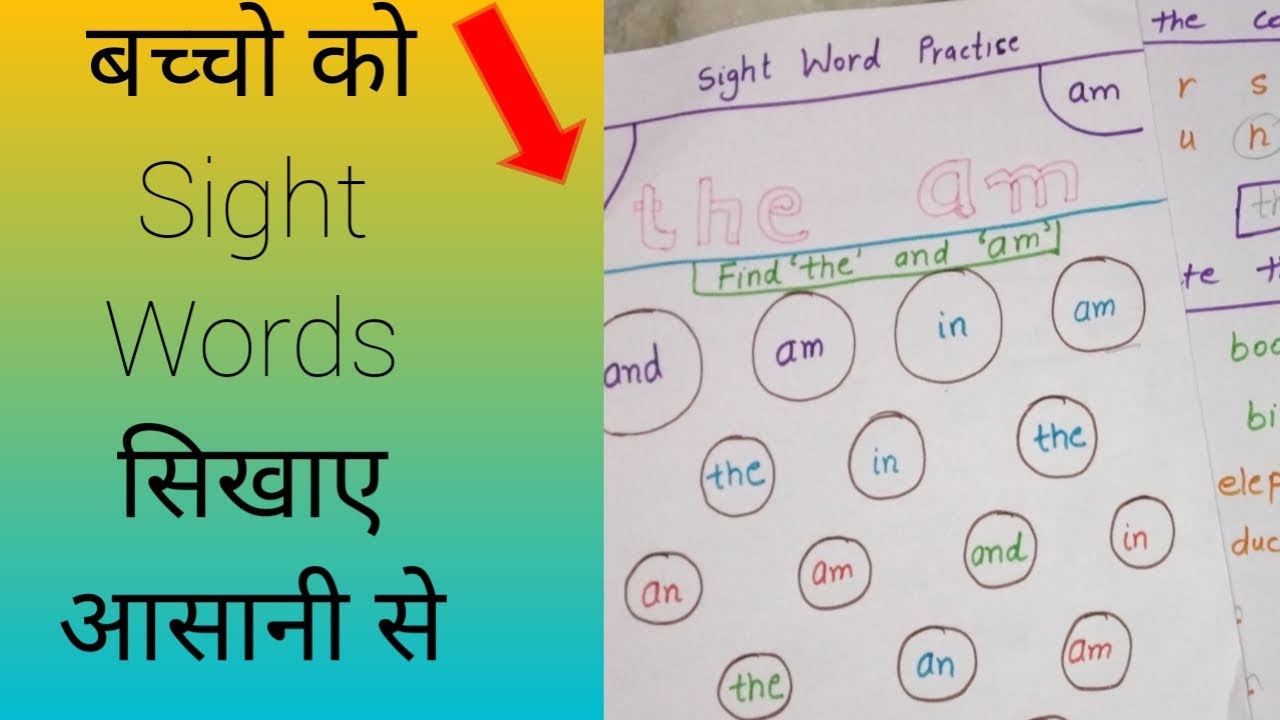 बच्चो को
Sight
Words
सिखाए
आसानी से
Sight Word Practise
am
the am
Find 'the' and 'am'
and am in am
the in the
an am and in
the an am
the
r s
u n